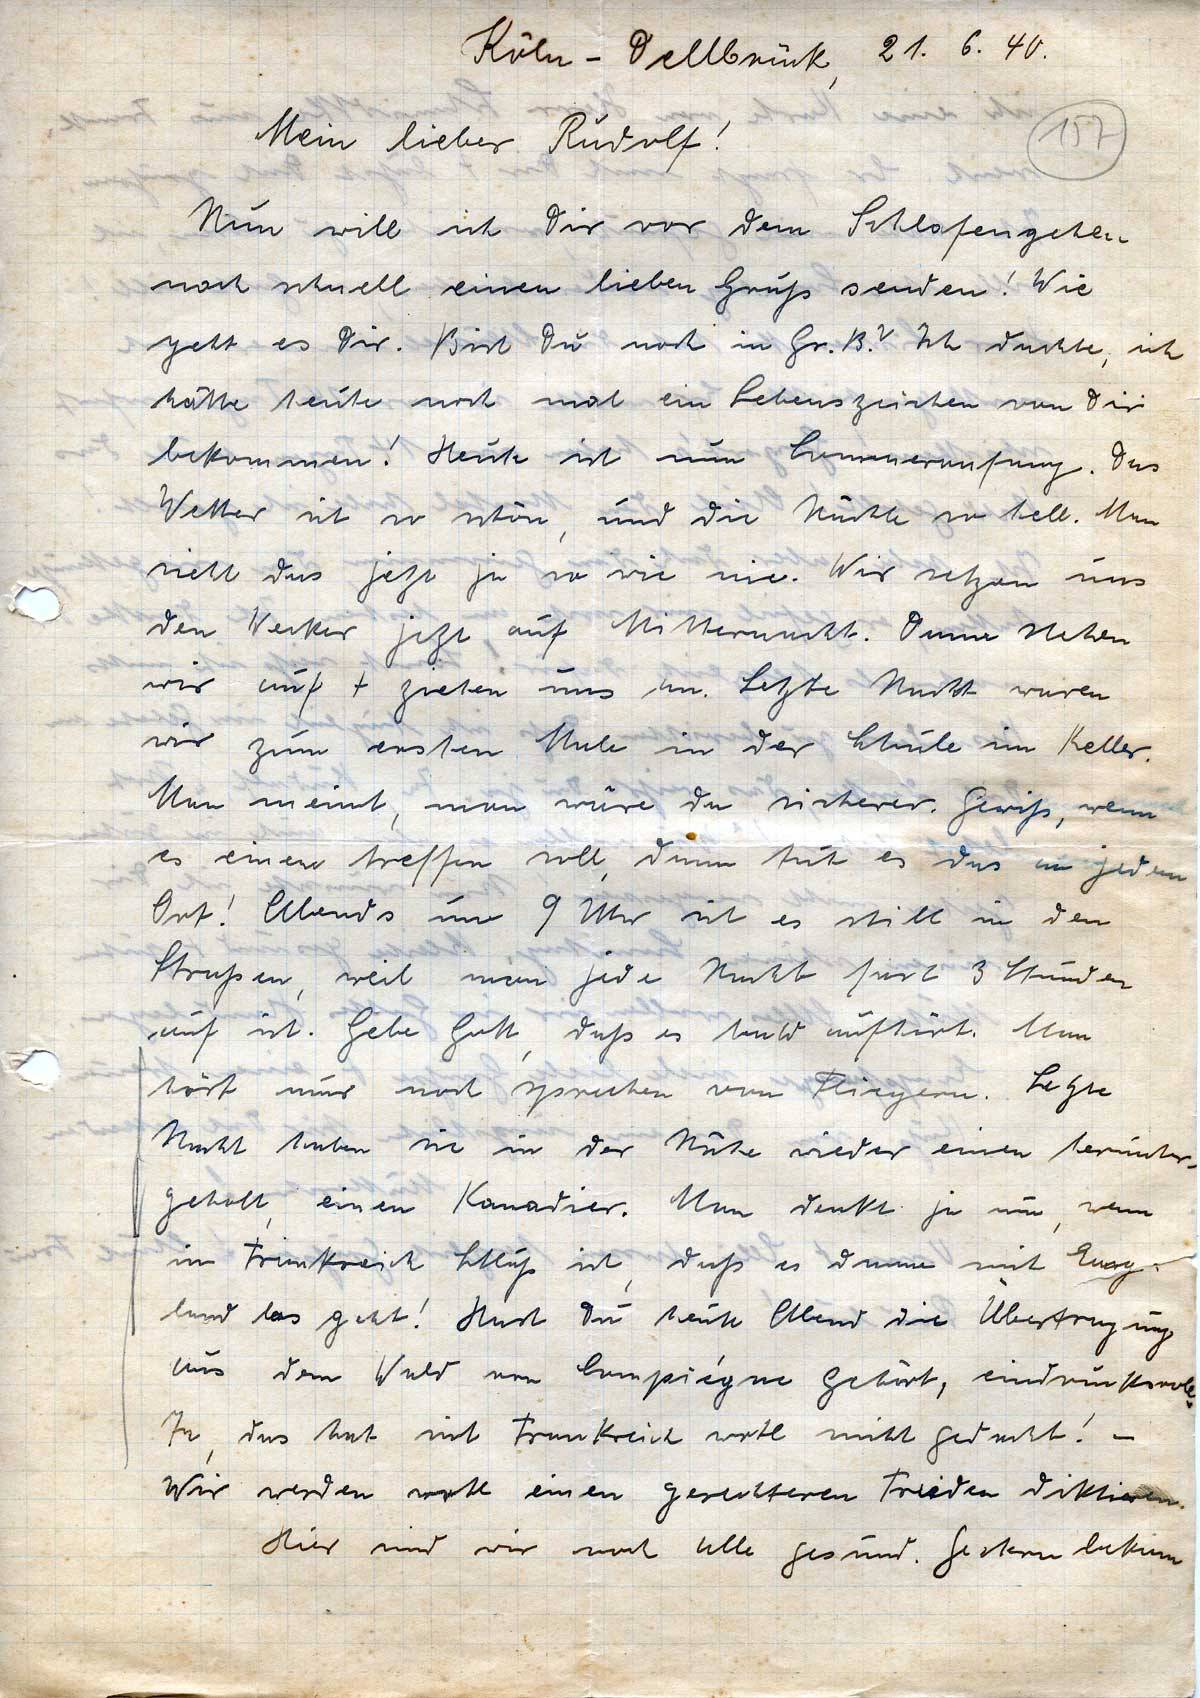 Köln - Dellbrück, 21. 6. 40.
157
Mein lieber Rudolf!
Nun will ich Dir vor dem Schlafengehen
noch schnell einen lieben Gruß senden! Wie
geht es Dir. Bist Du noch in Gr. B.? Ich dachte, ich
hätte heute noch mal ein Lebenszeichen von Dir
bekommen! Heute ist nun Sommeranfang. Das
Wetter ist so schön, und die Nächte so hell. Man
sieht das jetzt ja so wie nie. Wir setzen uns
den Wecker jetzt auf Mitternacht. Dann stehen
wir auf + ziehen uns an. Letzte Nacht waren
wir zum ersten Male in der Schule im Keller.
Man meint, man wäre da sicherer. Gewiß, wenn
es einen treffen soll, dann tut es das an jedem
Ort! Abends um 9 Uhr ist es still in den
Straßen, weil man jede Nacht fast 3 Stunden
auf ist. Gebe Gott, daß es bald aufhört. Man
hört nur noch sprechen von Fliegern. Letzte
Nacht haben sie in der Nähe wieder einen herunter-
geholt, einen Kanadier. Man denkt ja nun, wenn
in Frankreich Schluß ist, daß es dann mit Eng-
land los geht! Hast Du heute Abend die Übertragung
aus dem Wald von Compiégne gehört, eindrucksvoll.
Ja, das hat sich Frankreich wohl nicht gedacht! -
Wir werden wohl einen gerechteren Frieden diktieren.
Hier sind wir noch alle gesund. Gestern bekam